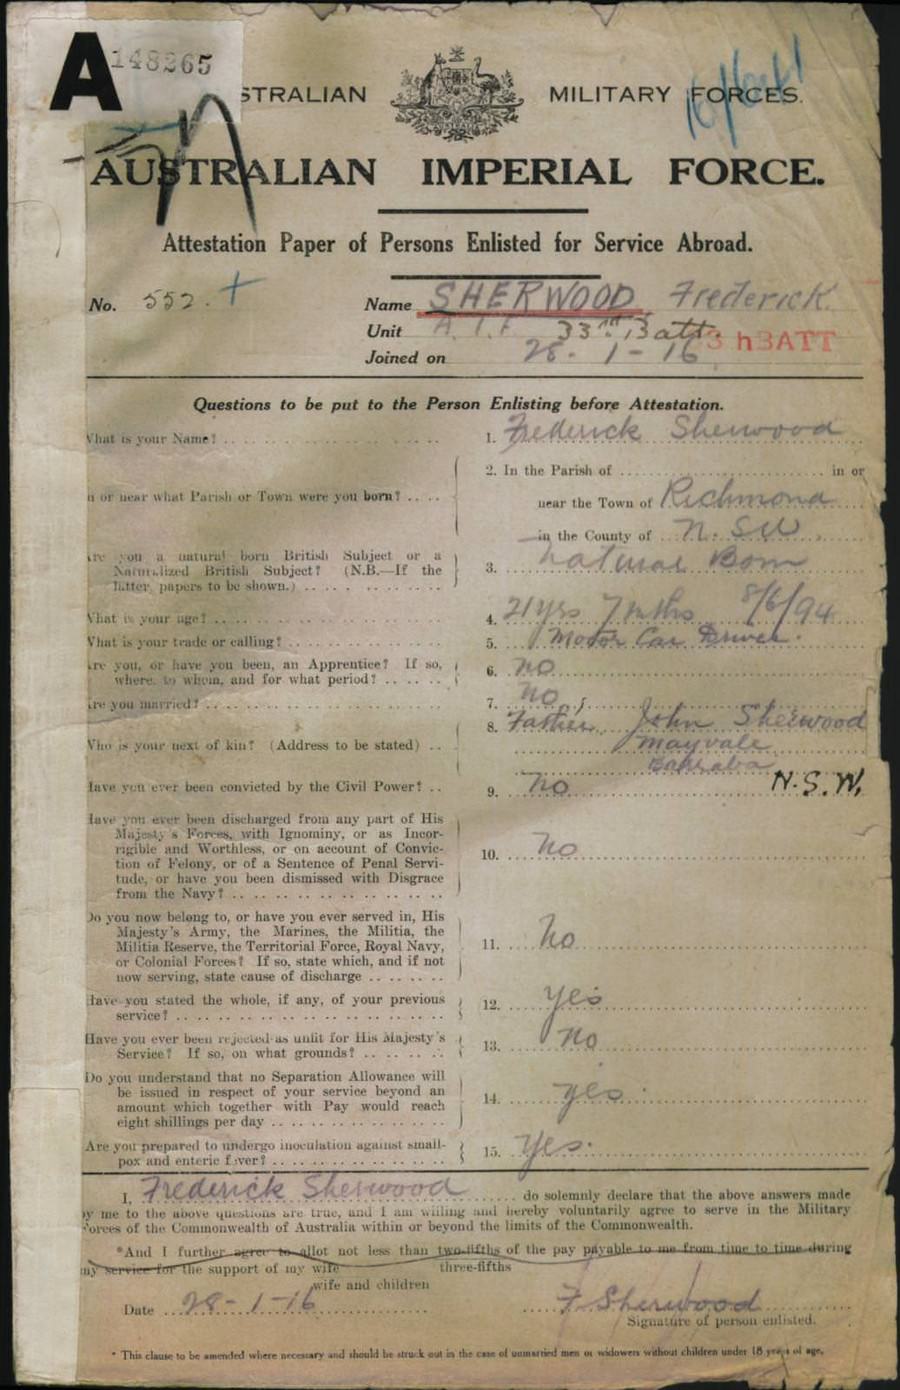 A 148265
STRALIAN MILITARY FORCES.
AUSTRALIAN IMPERIAL FORCE.
Attestation Paper of Persons Enlisted for Service Abroad.
No. 552. + Name SHERWOOD, Frederick.
Unit A.I.F. 33rd Batt. hBATT
Joined on 28-1-16
Questions to be put to the Person Enlisting before Attestation.
What is your Name? 1. Frederick Sherwood
2. In the Parish of in or
n or near what Parish or Town were you born? near the Town of Richmond
in the County of N.SW.
Are you a natural born British Subject or a
Naturalized British Subject? (N.B.—If the 3. Natural Born
latter, papers to be shown.)
What is your age? 4. 21yrs 7mths 8/6/94
What is your trade or calling? 5. Motor Car Driver.
Are you, or have you been, an Apprentice? If so, 6. No
where, to whom, and for what period?
Are you married? 7. No
8. Father John Sherwood
Who is your next of kin? (Address to be stated) Mayvale
Barraba
Have you ever been convicted by the Civil Power? 9. No N.S.W.
Have you ever been discharged from any part of His
Majesty's Forces, with Ignominy, or as Incor-
rigible and Worthless, or on account of Convic- 10. No
tion of Felony, or of a Sentence of Penal Servi-
tude, or have you been dismissed with Disgrace
from the Navy?
Do you now belong to, or have you ever served in, His
Majesty's Army, the Marines, the Militia, the
Militia Reserve, the Territorial Force, Royal Navy, 11. No
or Colonial Forces? If so, state which, and if not
now serving, state cause of discharge
Have you stated the whole, if any, of your previous 12. Yes
service?
Have you ever been rejected as unfit for His Majesty's 13. No
Service? If so, on what grounds?
Do you understand that no Separation Allowance will
be issued in respect of your service beyond an
amount which together with Pay would reach 14. Yes
eight shillings per day
Are you prepared to undergo inoculation against small- 15. Yes.
pox and enteric fever?
I, Frederick Sherwood do solemnly declare that the above answers made
by me to the above questions are true, and I am willing and hereby voluntarily agree to serve in the Military
Forces of the Commonwealth of Australia within or beyond the limits of the Commonwealth.
*And I further agree to allot not less than two-fifths of the pay payable to me from time to time during
my service for the support of my wife three-fifths
wife and children
Date 28-1-16 F Sherwood
Signature of person enlisted.
* This clause to be amended where necessary and should be struck out in the case of unmarried men or widowers without children under 18 years of age.